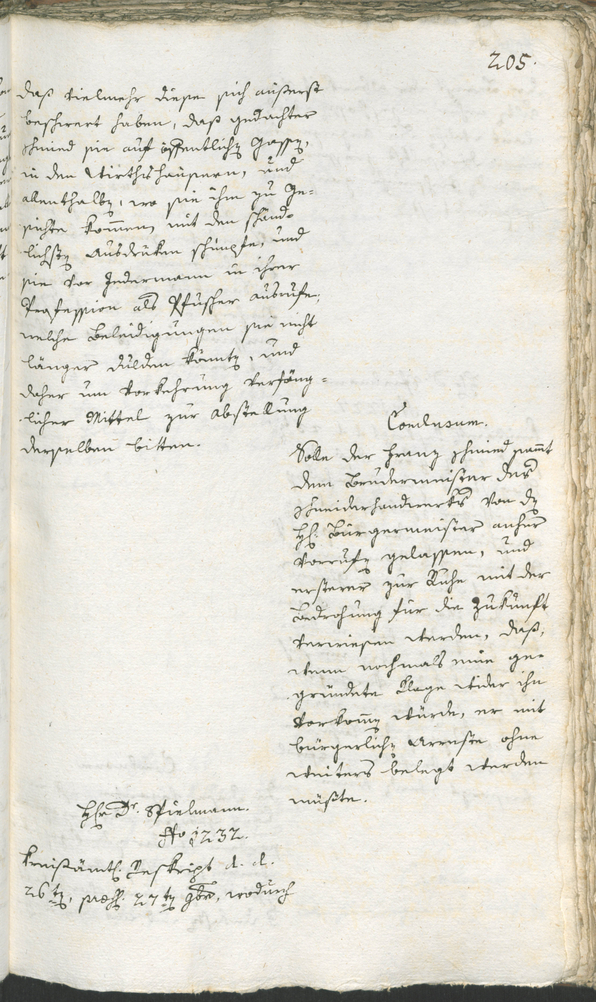 205.
daß vielmehr diese sich äußerst
beschwert haben, daß gedachter
Schmied sie auf öffentlichen Gassen,
in den Wirthshäusern, und
allenthalben, wo sie ihm zu Ge-
sichte kommen, mit den schänd-
lichsten Ausdrüken schimpfe, und
sie vor Jedermann in ihrer
Profession als Pfuscher ausrufe,
welche Beleidigungen sie nicht
länger dulden könnten, und
daher um Vorkehrung verfäng-
licher Mittel zur Abstellung
derselben bitten.
Conclusum.
Solle der Franz Schmied sammt
dem Brudermeister des
Schneiderhandwerks von den
H. Bürgermeister anher
vorrufen gelassen, und
ersterer zur Ruhe mit der
Bedrohung für die Zukunft
verwiesen werden, daß,
wenn nochmals eine ge-
gründete Klage wider ihn
vorkommen würde, er mit
bürgerlichen Arreste ohne
weiters belegt werden
müßte.
Hr. Dr. Spielmann.
No 1232.
Kreisämtl. Reskript d. d.
26ten, præs. 27ten 9br, wodurch